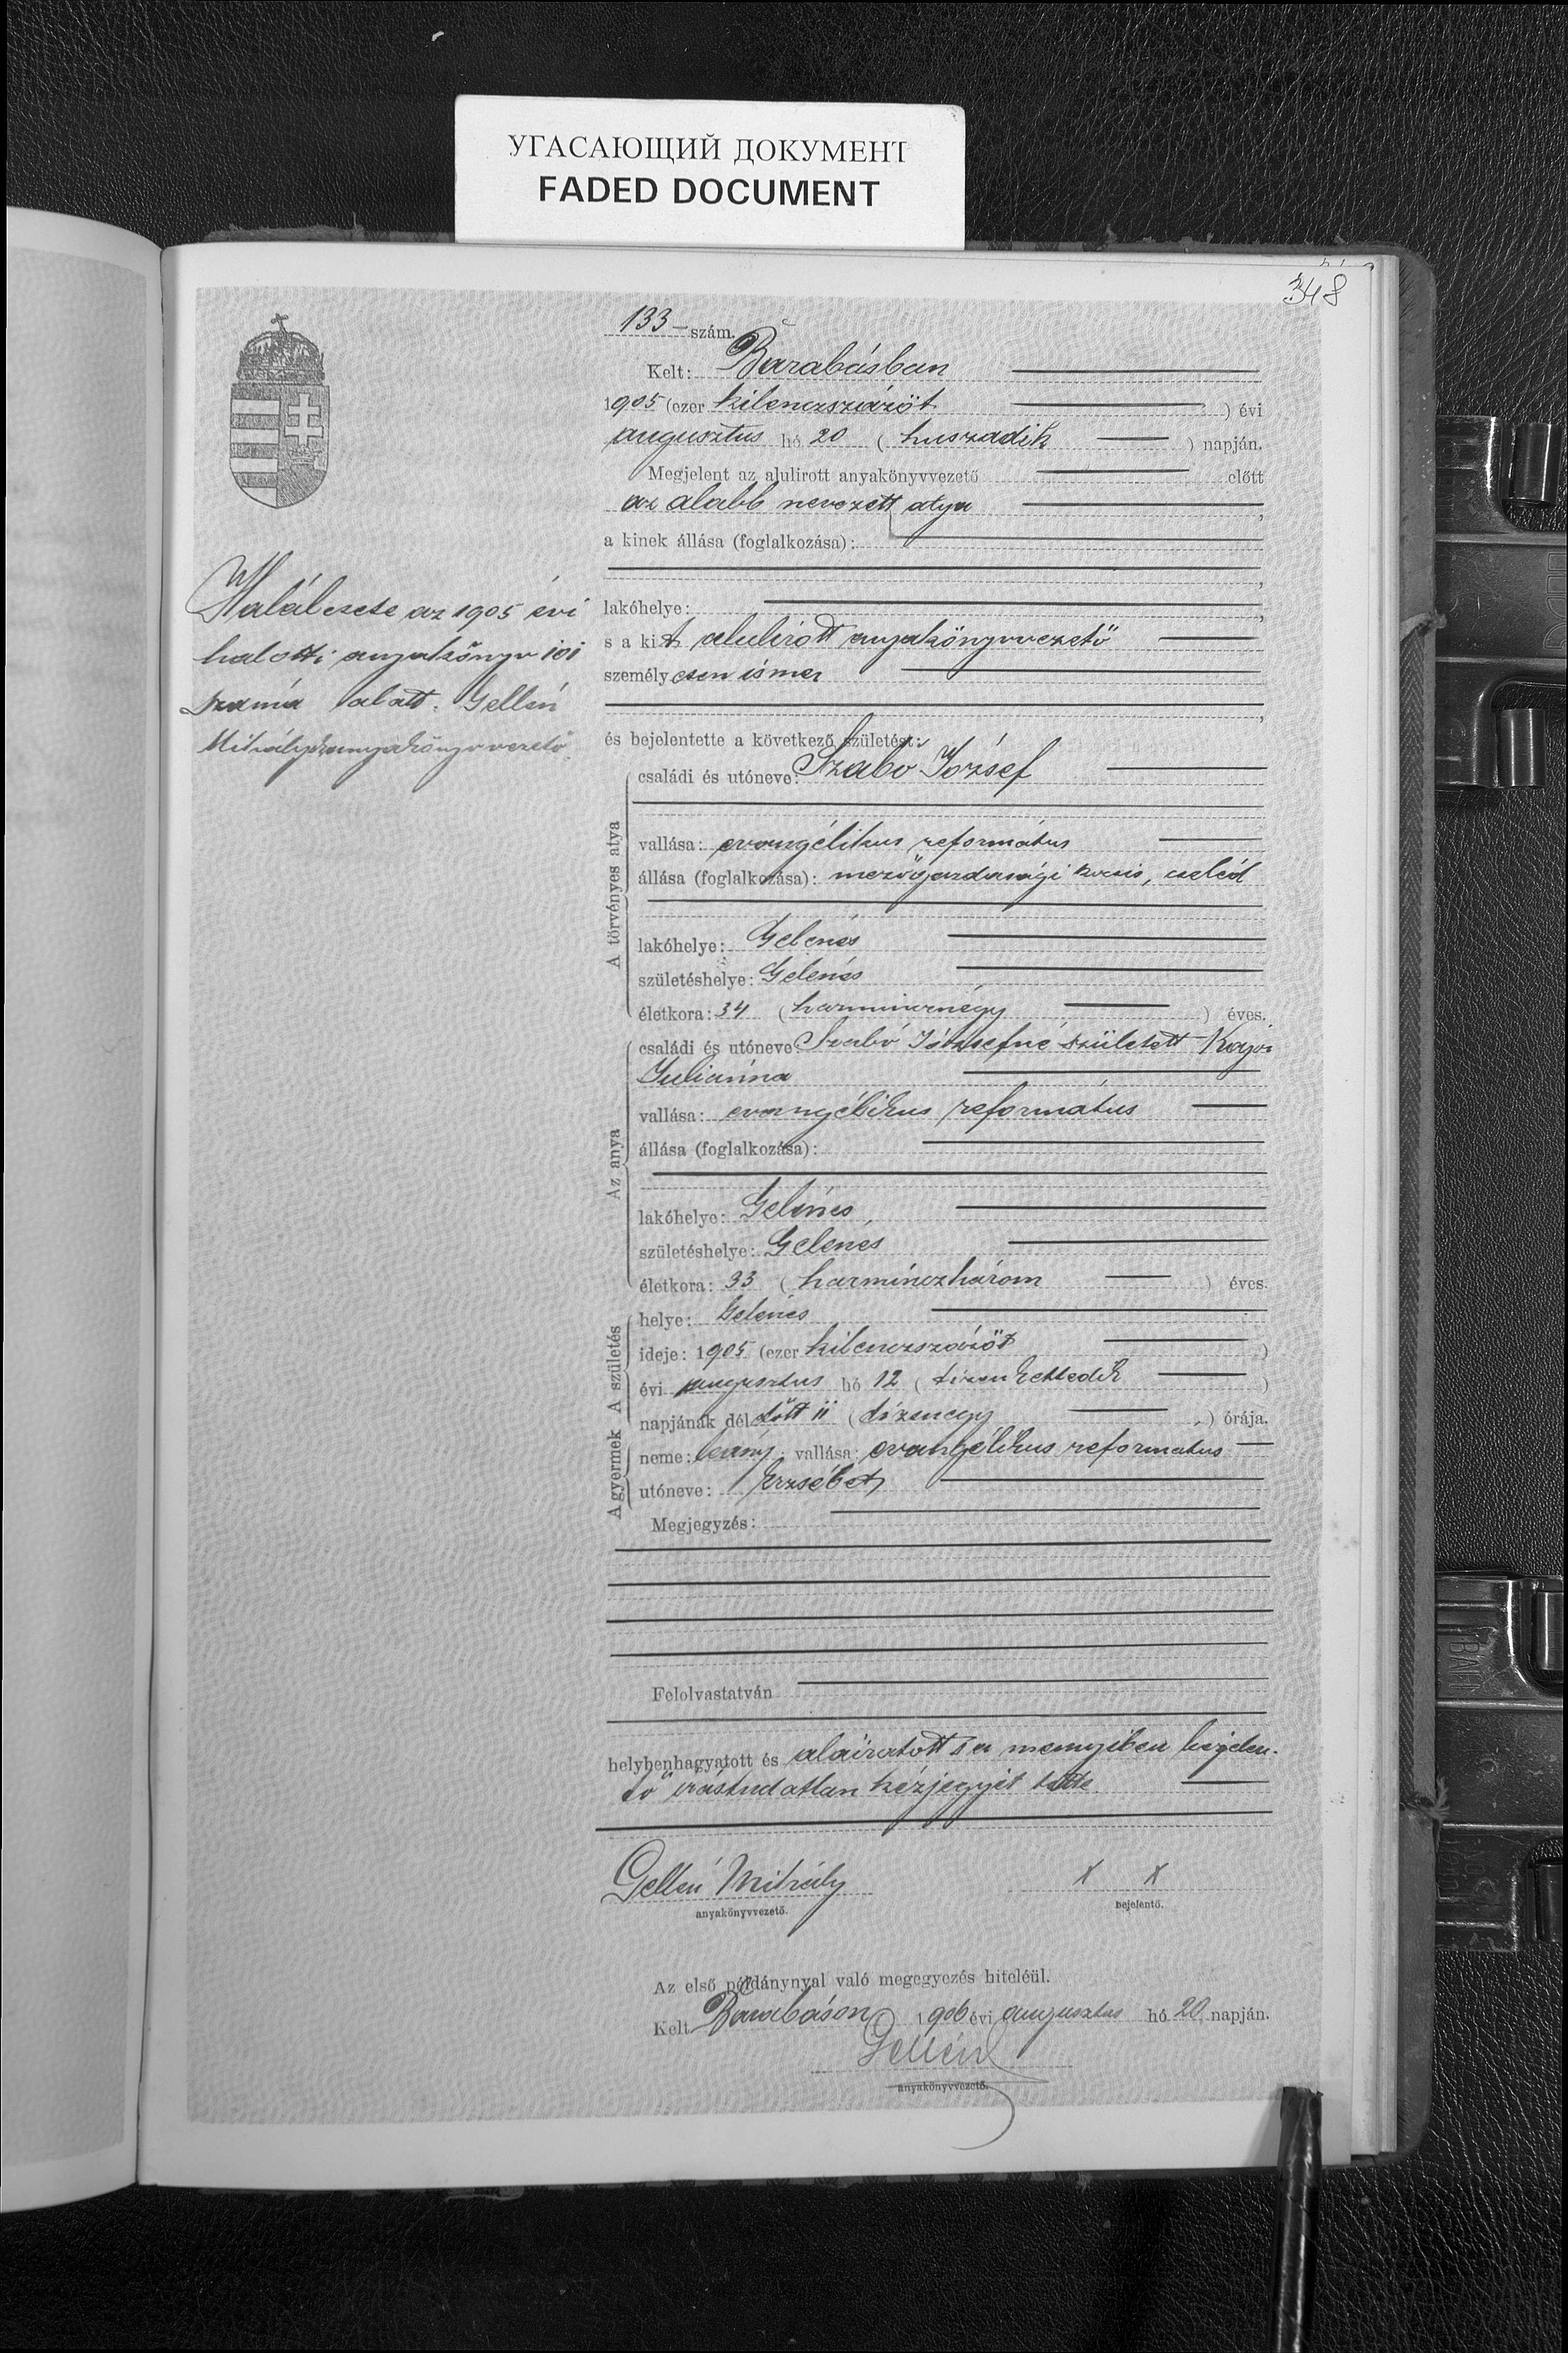 УГАСАЮЩИЙ ДОКУМЕНТ
FADED DOCUMENT
348
133 – szám.
Kelt: Barabásban
1905 (ezer kilenczszázöt ) évi
augusztus hó 20 ( huszadik ) napján.
Megjelent az alulirott anyakönyvvezető előtt
az alabb nevezett atya ,
a kinek állása (foglalkozása):
,
lakóhelye: ,
s a kit alulirott anyakönyvvezető
személyesen ismer
,
Halálesete az 1905 évi
halotti anyakönyv 101
száma alatt. Gellén
Mihály anyakönyvvezető
és bejelentette a következő születést:
A törvényes atya
családi és utóneve: Szabó József
vallása: evangélikus református
állása (foglalkozása): mezőgazdasági kocsis, cseléd
lakóhelye: Gelénes
születéshelye: Gelénes
életkora: 34 ( harmincznégy ) éves.
Az anya
családi és utóneve: Szabó Józsefné született
Juliánna
vallása: evangélikus református
állása (foglalkozása):
lakóhelye: Gelénes
születéshelye: Gelenes
életkora: 33 ( harminczhárom ) éves.
A gyermek A születés
helye: Gelénes
ideje: 1905 (ezer kilenczszázöt )
évi augusztus hó 12 ( tizenkettedik )
napjának délelőtt 11 ( tizenegy ) órája.
neme: leány; vallása: evangélikus reformatus
utóneve: Erzsébet
Megjegyzés:
Felolvastatván
helybenhagyatott és aláiratott s a mennyiben bejelen-
tő irástudatlan kézjegyét tette.
Gellén Mihály
anyakönyvvezető.
x x
bejelentő.
Az első példánynyal való megegyezés hiteléül.
Kelt Barabáson 1906 évi augusztus hó 20 napján.
Gellén
anyakönyvvezető.